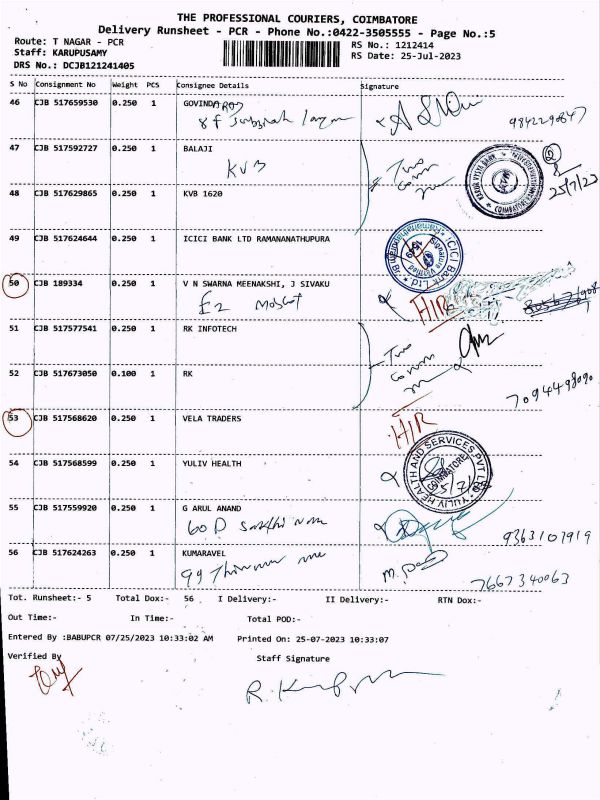 THE PROFESSIONAL COURIERS, COIMBATORE
Delivery Runsheet - PCR - Phone No.:0422-3505555 - Page No.:5
Route: T NAGAR - PCR
RS No.: 1212414
Staff: KARUPUSAMY
RS Date: 25-Jul-2023
DRS No.: DCJB121241405
S No Consignment No Weight PCS Consignee Details Signature
46 CJB 517659530 0.250 1 GOVINDARAJ
8 f
9842290847
47 CJB 517592727 0.250 1 BALAJI
KVB
Two
25/7/23
48 CJB 517629865 0.250 1 KVB 1620
49 CJB 517624644 0.250 1 ICICI BANK LTD RAMANANATHUPURA
ICICI Bank Ltd
Signature Verified
50 CJB 189334 0.250 1 V N SWARNA MEENAKSHI, J SIVAKU
E2
H/R
51 CJB 517577541 0.250 1 RK INFOTECH
Two
52 CJB 517673050 0.100 1 RK
7094498090
53 CJB 517568620 0.250 1 VELA TRADERS
H/R
54 CJB 517568599 0.250 1 YULIV HEALTH
YULIV HEALTH AND SERVICES PVT LTD
COIMBATORE
55 CJB 517559920 0.250 1 G ARUL ANAND
60 D
9363107919
56 CJB 517624263 0.250 1 KUMARAVEL
99
7667340063
Tot. Runsheet:- 5 Total Dox:- 56 I Delivery:- II Delivery:- RTN Dox:-
Out Time:- In Time:- Total POD:-
Entered By :BABUPCR 07/25/2023 10:33:02 AM Printed On: 25-07-2023 10:33:07
Verified By Staff Signature